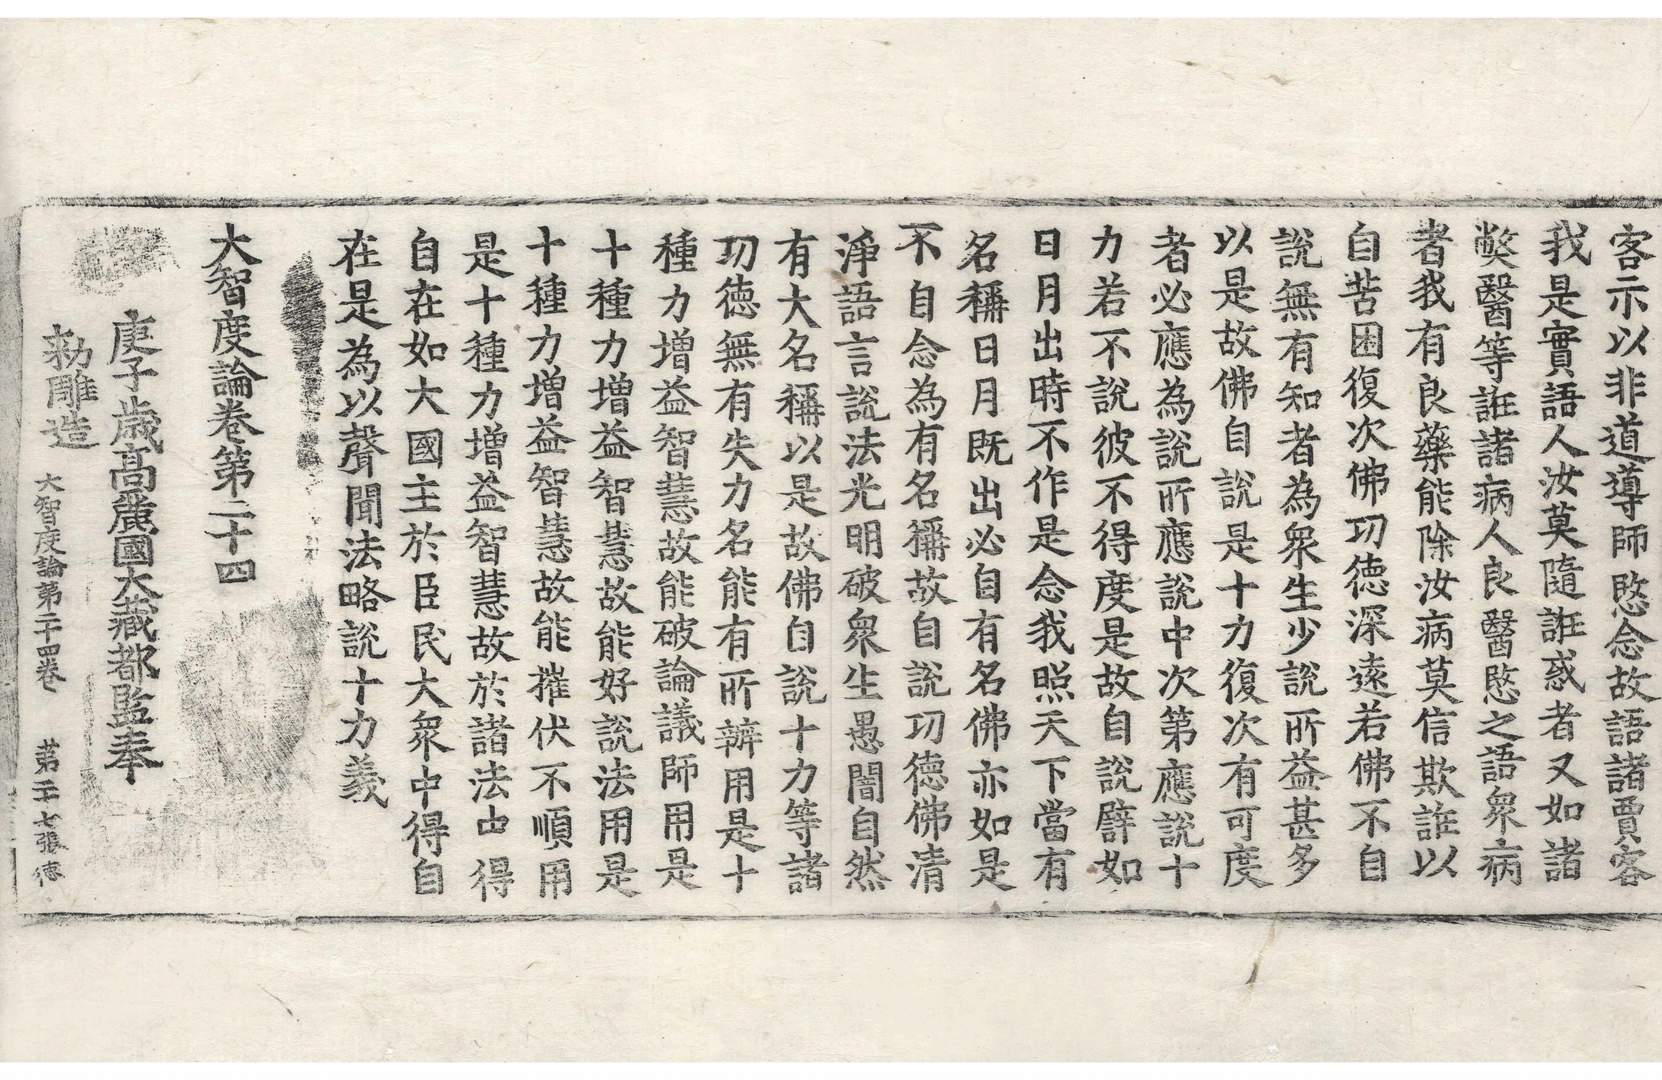 客示以非道導師愍念故語諸賈客
我是實語人汝莫隨誑惑者又如諸
弊醫等誑諸病人良醫愍之語衆病
者我有良藥能除汝病莫信欺誑以
自苦困復次佛功德深遠若佛不自
說無有知者為衆生少說所益甚多
以是故佛自說是十力復次有可度
者必應為說所應說中次第應說十
力若不說彼不得度是故自說譬如
日月出時不作是念我照天下當有
名稱日月既出必自有名佛亦如是
不自念為有名稱故自說功德佛清
淨語言說法光明破衆生愚闇自然
有大名稱以是故佛自說十力等諸
功德無有失力名能有所辦用是十
種力增益智慧故能破論議師用是
十種力增益智慧故能好說法用是
十種力增益智慧故能摧伏不順用
是十種力增益智慧故於諸法中得
自在如大國主於臣民大衆中得自
在是為以聲聞法略說十力義
大智度論卷第二十四
庚子歲高麗國大藏都監奉
勑雕造
大智度論第二十四卷 第二十七張 德